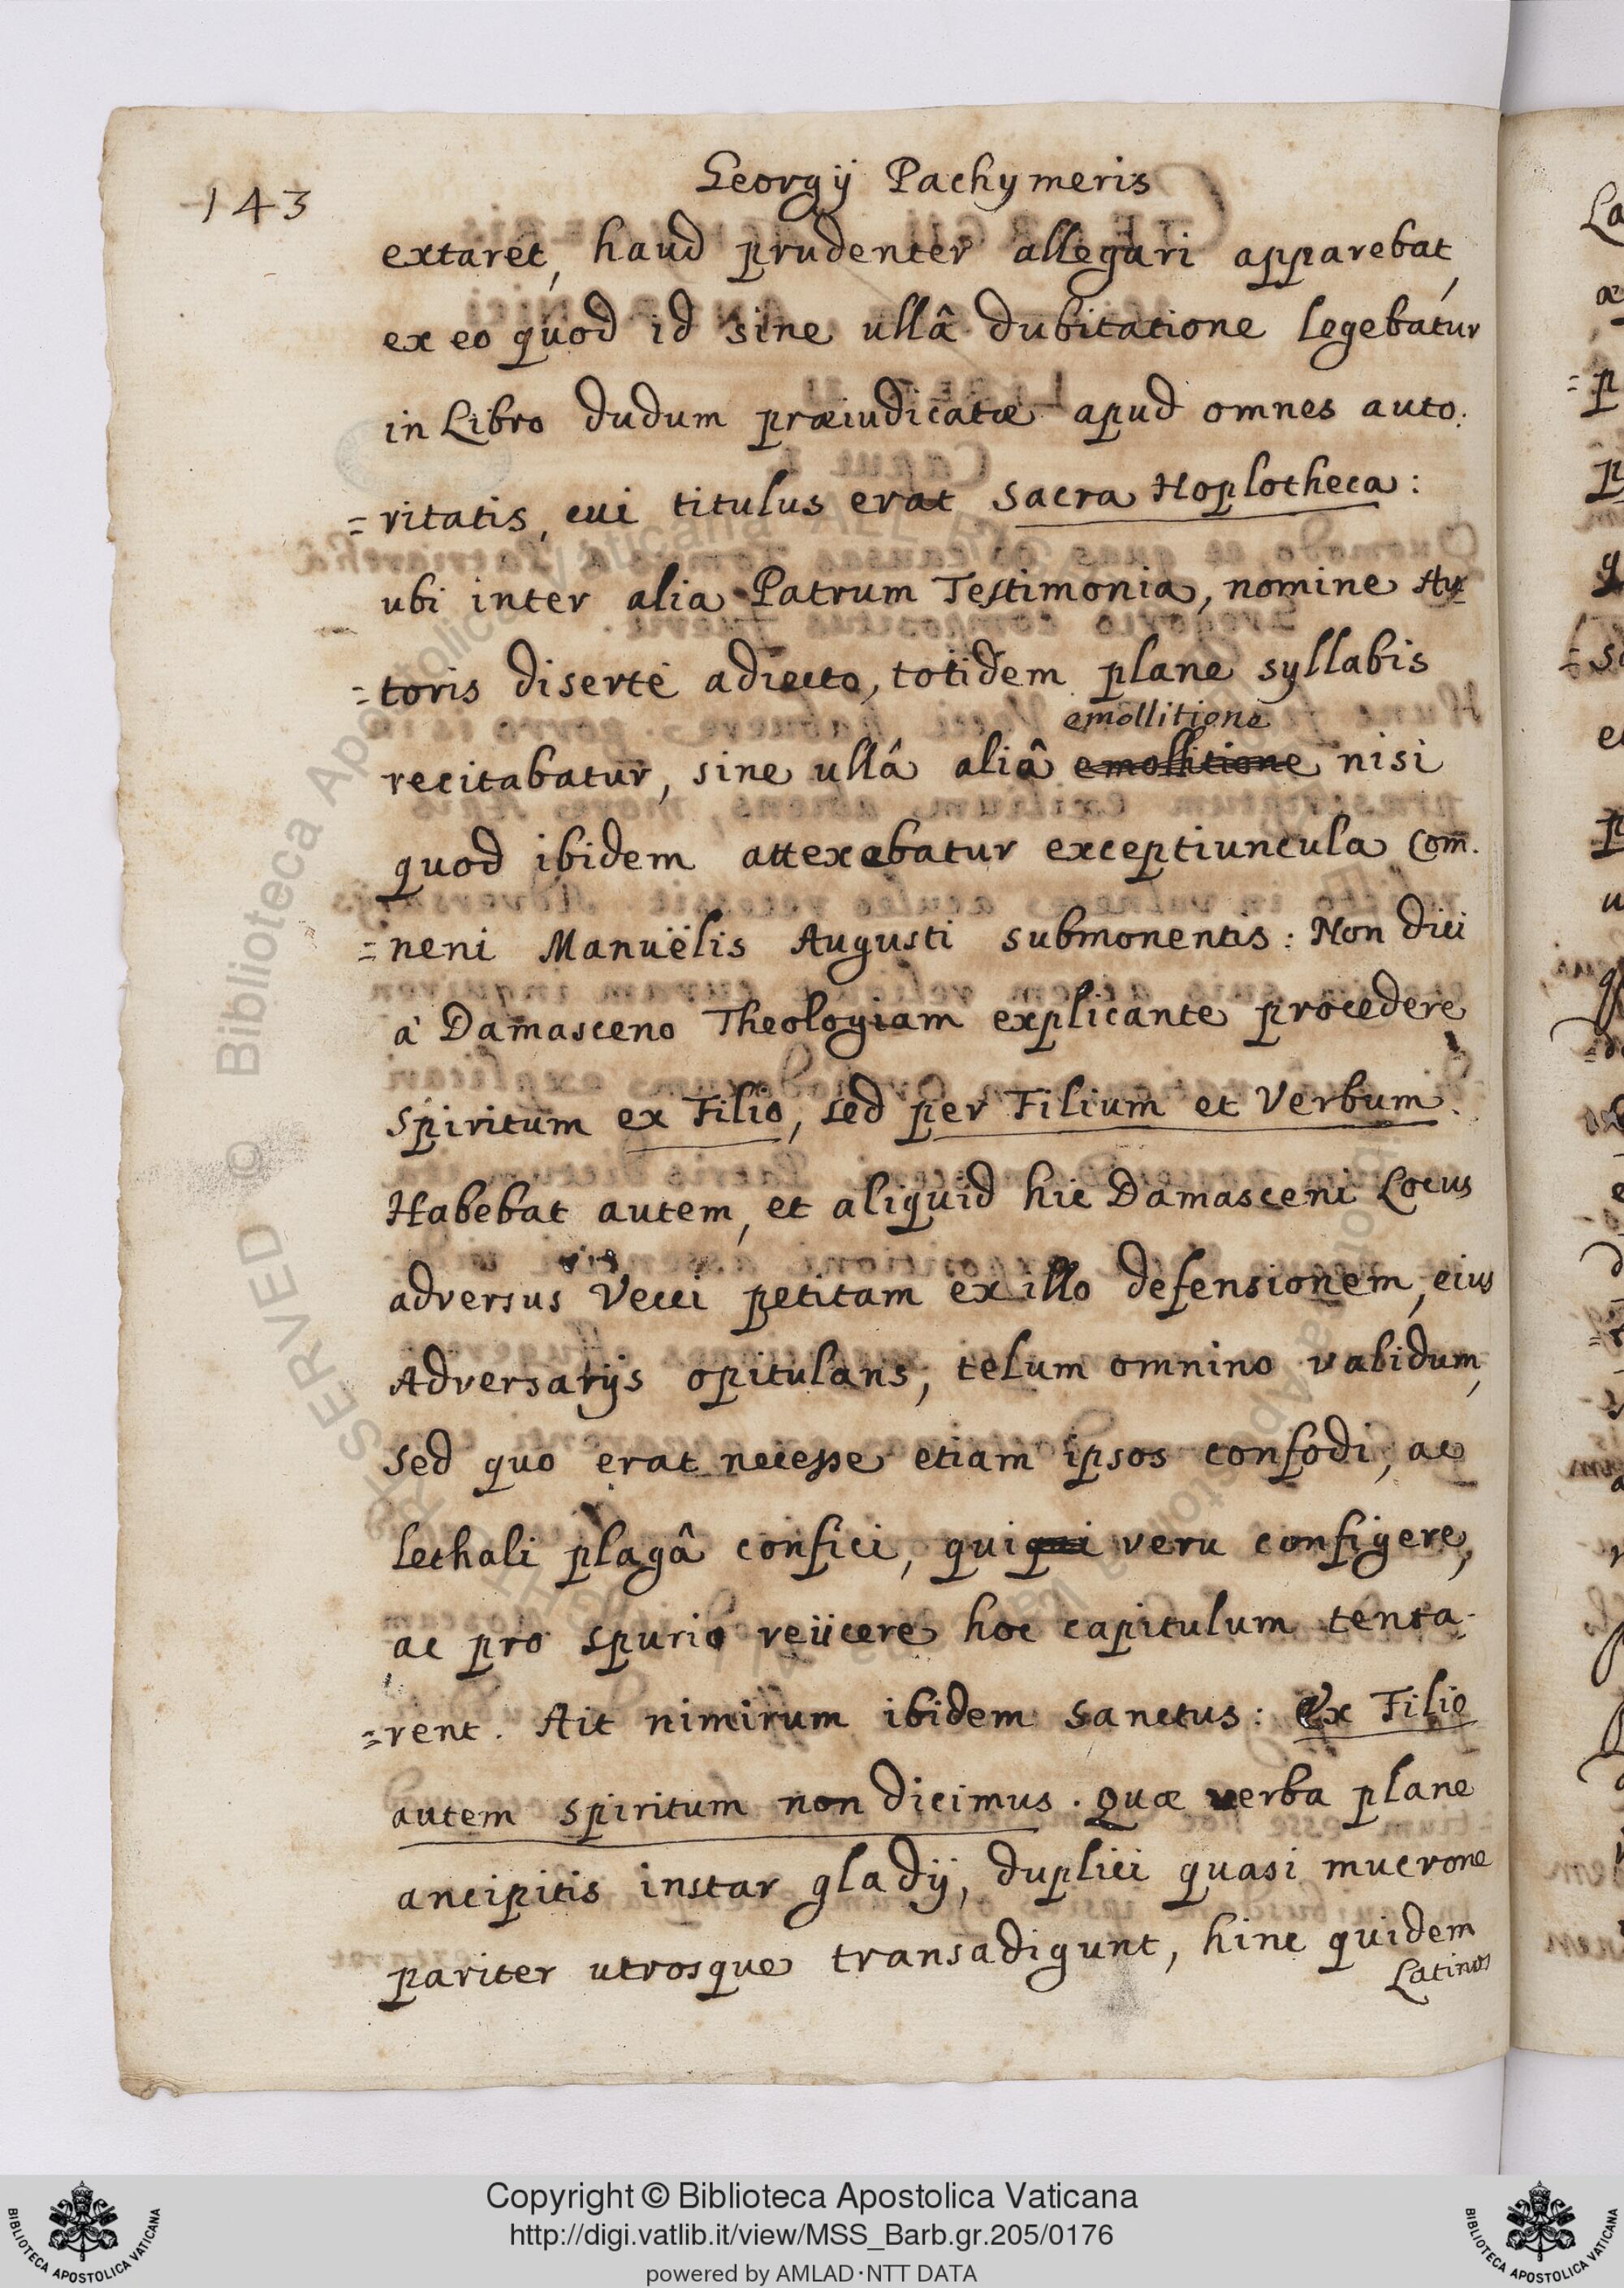 143
Georgÿ Pachymeris
extaret, haud prudenter allegari apparebat,
ex eo quod id sine ullâ dubitatione legebatur
in Libro dudum præiudicatæ apud omnes auto:
=ritatis, cui titulus erat Sacra Hoplotheca:
ubi inter alia Patrum Testimonia, nomine Au=
=toris diserte adiecto, totidem plane syllabis
emollitione
recitabatur, sine ullâ aliâ emollitione nisi
quod ibidem attexebatur exceptiuncula Com.
=neni Manuëlis Augusti submonentis: Non dici
à Damasceno Theologiam explicante procedere
Spiritum ex Filio, sed per Filium et Verbum.
Habebat autem, et aliquid hic Damasceni Locus
adversus Vecci petitam ex illo defensionem, eius
Adversarÿs opitulans, telum omnino validum,
sed quo erat necesse etiam ipsos confodi, ac
lethali plagâ confici, qui qui veru configere,
ac pro spurio reiicere hoc capitulum tenta-
=rent. Ait nimirum ibidem Sanctus: Ex Filio
autem Spiritum non dicimus. Quæ verba plane
ancipitis instar gladÿ, duplici quasi mucrone
pariter utrosque transadigunt, hinc quidem
Latinos
Copyright © Biblioteca Apostolica Vaticana
http://digi.vatlib.it/view/MSS_Barb.gr.205/0176
powered by AMLAD·NTT DATA
BIBLIOTECA APOSTOLICA VATICANA
BIBLIOTECA APOSTOLICA VATICANA